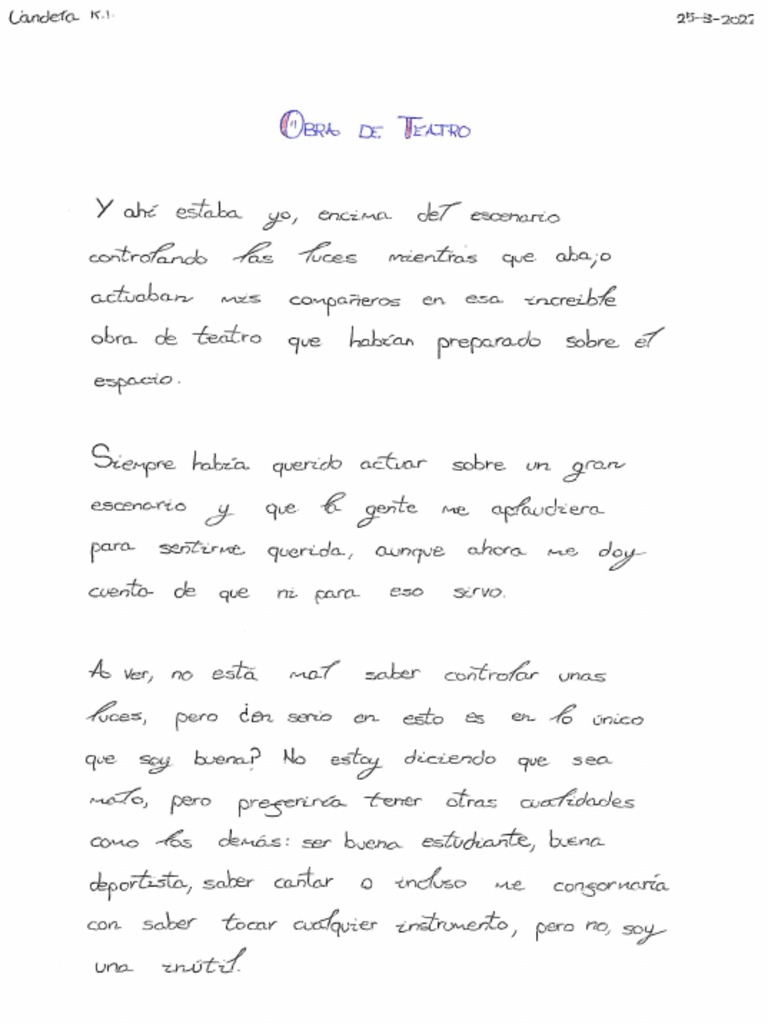 Candela K.I. 25-3-2022
Obra de Teatro
Y ahí estaba yo, encima del escenario
controlando las luces mientras que abajo
actuaban mis compañeros en esa increible
obra de teatro que habían preparado sobre el
espacio.
Siempre había querido actuar sobre un gran
escenario y que la gente me aplaudiera
para sentirme querida, aunque ahora me doy
cuenta de que ni para eso sirvo.
A ver, no está mal saber controlar unas
luces, pero ¿en serio en esto es en lo único
que soy buena? No estoy diciendo que sea
malo, pero preferiría tener otras cualidades
como los demás: ser buena estudiante, buena
deportista, saber cantar o incluso me conformaría
con saber tocar cualquier instrumento, pero no, soy
una inútil.